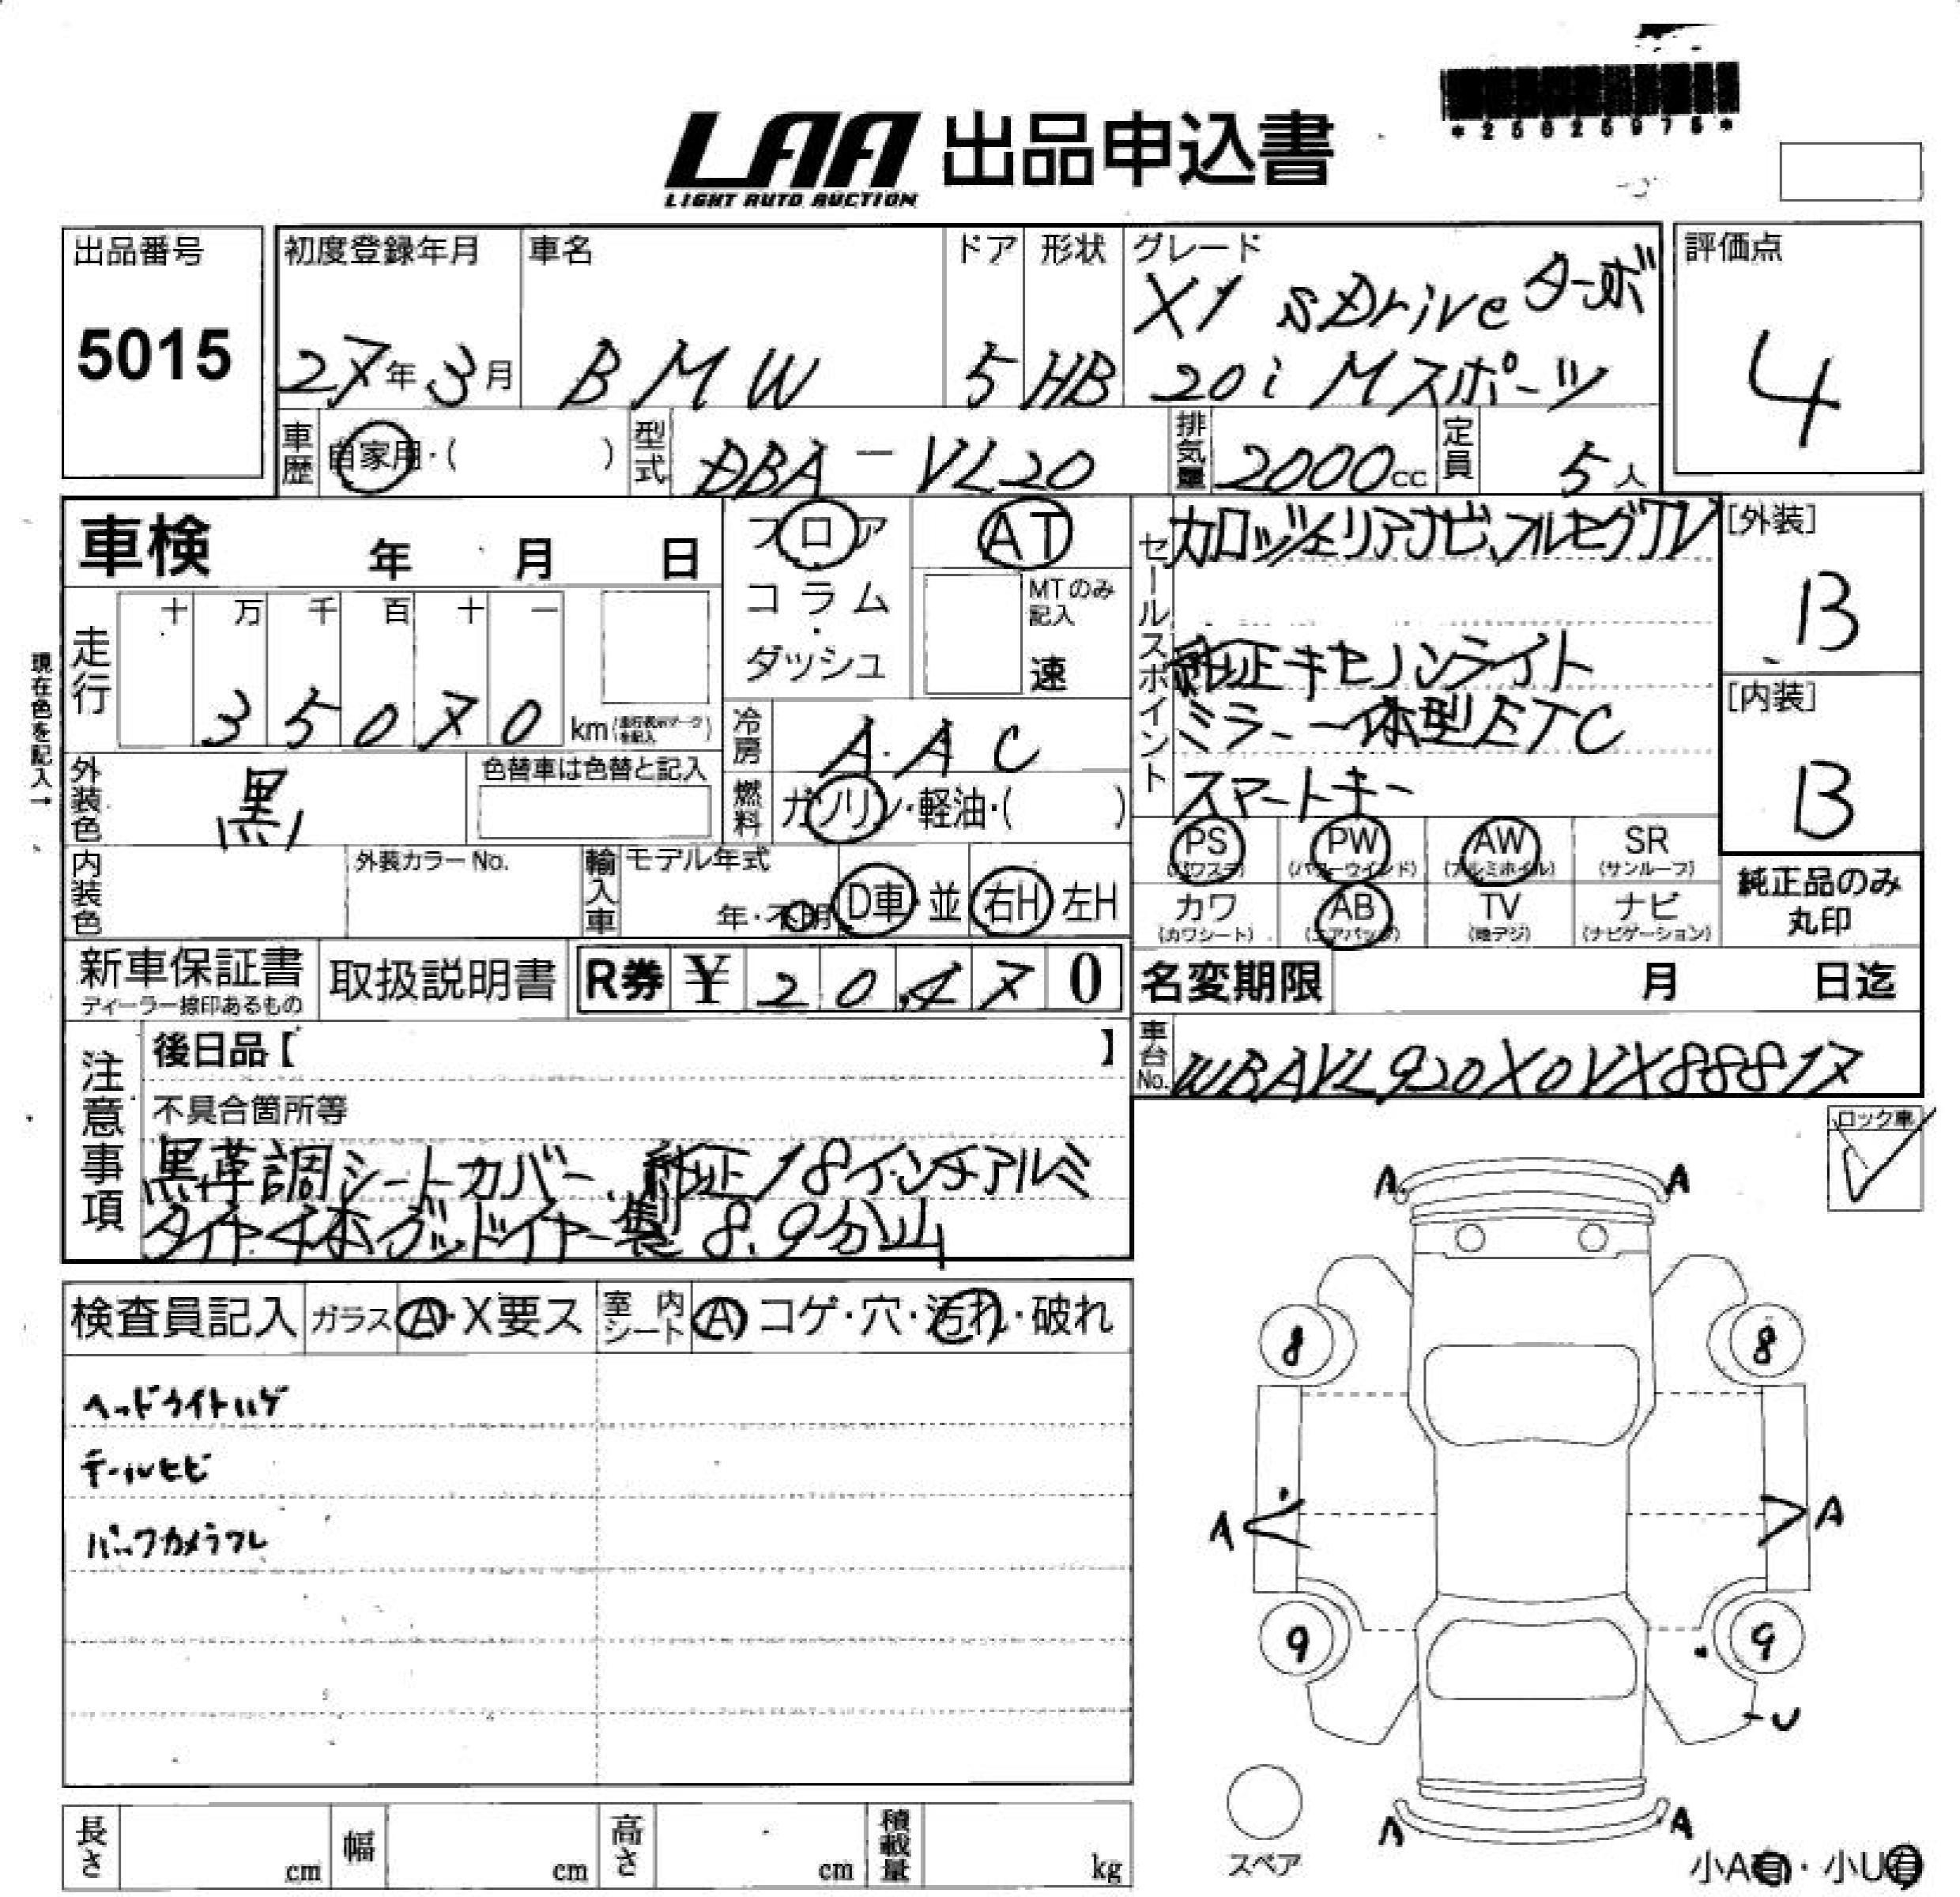 *25025975*
LAA 出品申込書
LIGHT AUTO AUCTION
出品番号 5015
初度登録年月 27年 3月
車名 BMW
ドア 5
形状 HB
グレード X1 sDrive ターボ
20i Mスポーツ
評価点 4
車歴 自家用・( )
型式 DBA-VL20
排気量 2000cc
定員 5人
車検 年 月 日
フロア
コラム
・
ダッシュ
AT
MTのみ記入
速
現在色を記入→
走行 十 万 千 百 十 一
35070 km
冷房 AAC
外装色 黒
色替車は色替と記入
燃料 ガソリン・軽油・( )
内装色
外装カラーNo.
輸入車 モデル年式
年・不明
D車・並 右H 左H
セールスポイント
カロッツェリアナビ、フルセグTV
純正キセノンライト
ミラー一体型ETC
スマートキー
[外装] B
[内装] B
PS (パワステ) PW (パワーウインド) AW (アルミホイル) SR (サンルーフ)
カワ (カワシート) AB (エアバッグ) TV (地デジ) ナビ (ナビゲーション)
純正品のみ
丸印
新車保証書
ディーラー捺印あるもの
取扱説明書
R券 ¥ 20,470
名変期限 月 日迄
車台No. WBAVL920X0VX88817
注意事項
後日品【 】
不具合箇所等
黒革調シートカバー、純正18インチアルミ
タイヤ4本グッドイヤー製 8.9分山
ロック車
検査員記入 ガラス A・X要ス 室内シート A コゲ・穴・汚れ・破れ
ヘッドライトハゲ
テールヒビ
バックカメラフレ
A A
8 8
A A
9 9
U
A A
スペア
小A有・小U有
長さ cm 幅 cm 高さ cm 積載量 kg